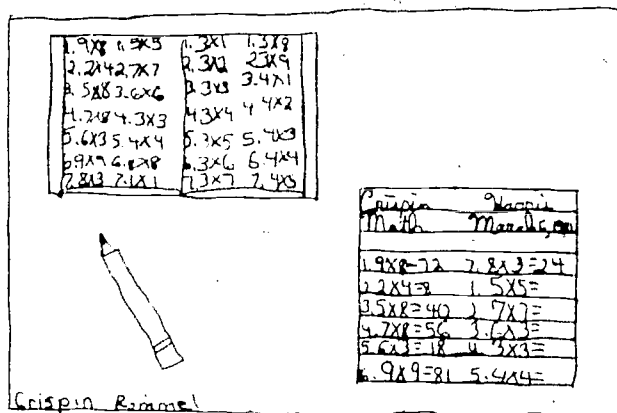 1. 9X8 1. 5X5
2. 2X4 2. 7X7
3. 5X8 3. 6X6
4. 7X8 4. 3X3
5. 6X3 5. 4X4
6 9X9 6. 8X8
7. 8X3 7. 1X1
1. 3X1 1. 3X8
2. 3X2 2 3X9
3. 3X3 3. 4X1
4 3X4 4 4X2
5. 3X5 5. 4X3
6. 3X6 6. 4X4
7. 3X7 7. 4X5
Crispin Harris
Math March 5,
1. 9X8=72 7. 8X3=24
2 2X4=8 1. 5X5=
3. 5X8=40 2 7X7=
4. 7X8=56 3. 6X3=
5 6X3=18 4. 3X3=
6. 9X9=81 5. 4X4=
Crispin Rommel